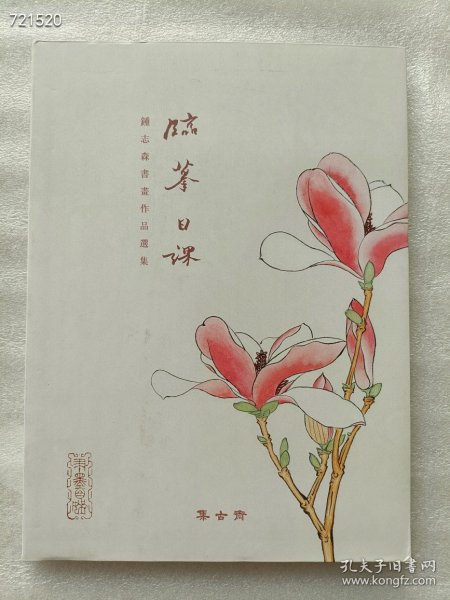 721520
臨摹日課
鍾志森書畫作品選集
集古齋
孔夫子旧书网
www.kongfz.com